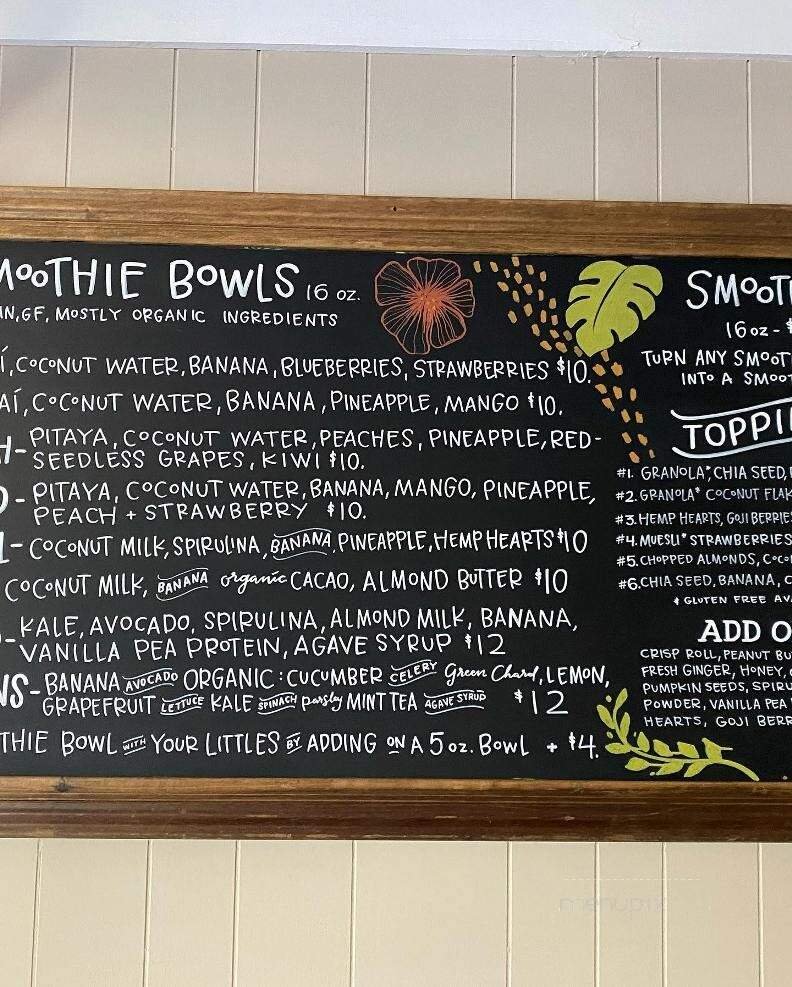 MOOTHIE BOWLS 16 oz.
N, GF, MOSTLY ORGANIC INGREDIENTS
Í, COCONUT WATER, BANANA, BLUEBERRIES, STRAWBERRIES $10.
AÍ, COCONUT WATER, BANANA, PINEAPPLE, MANGO $10.
H- PITAYA, COCONUT WATER, PEACHES, PINEAPPLE, RED-
SEEDLESS GRAPES, KIWI $10.
- PITAYA, COCONUT WATER, BANANA, MANGO, PINEAPPLE,
PEACH + STRAWBERRY $10.
- COCONUT MILK, SPIRULINA, BANANA, PINEAPPLE, HEMP HEARTS $10
COCONUT MILK, BANANA organic CACAO, ALMOND BUTTER $10
- KALE, AVOCADO, SPIRULINA, ALMOND MILK, BANANA,
VANILLA PEA PROTEIN, AGAVE SYRUP $12
NS- BANANA AVOCADO ORGANIC: CUCUMBER CELERY Green Chard, LEMON,
GRAPEFRUIT LETTUCE KALE SPINACH parsley MINT TEA AGAVE SYRUP $12
THIE BOWL WITH YOUR LITTLES BY ADDING ON A 5 oz. BOWL + $4.
SMOOT
16 oz - $
TURN ANY SMOOT
INTO A SMOOT
TOPPI
#1. GRANOLA*, CHIA SEED,
#2. GRANOLA* COCONUT FLAK
#3. HEMP HEARTS, GOJI BERRIES
#4. MUESLI* STRAWBERRIES
#5. CHOPPED ALMONDS, COCO
#6. CHIA SEED, BANANA, C
* GLUTEN FREE AVA
ADD O
CRISP ROLL, PEANUT BU
FRESH GINGER, HONEY,
PUMPKIN SEEDS, SPIRU
POWDER, VANILLA PEA
HEARTS, GOJI BERR